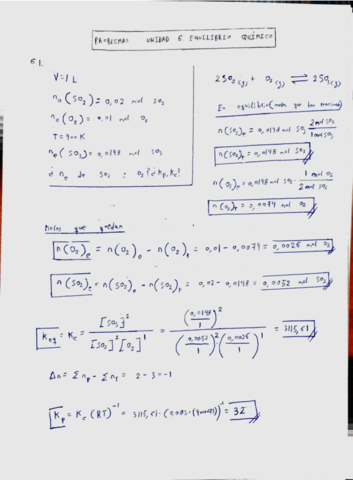 PROBLEMAS UNIDAD 6. EQUILIBRIO QUÍMICO
61.
V=1L
n₀(SO₂)=0,02 mol SO₂
n₀(O₂)=0,01 mol O₂
T=900K
nₑ(SO₃)=0,0148 mol SO₃
¿nₑ de SO₂ y O₂? ¿Kp, Kc?
2SO₂(g) + O₂(g) ⇌ 2SO₃(g)
En equilibrio
n(SO₂)r = 0,0148 mol SO₃ · 2 mol SO₂ / 2 mol SO₃
n(SO₂)r = 0,0148 mol SO₂
n(O₂)r = 0,0148 mol SO₂ · 1 mol O₂ / 2 mol SO₂
n(O₂)r = 0,0074 mol O₂
Moles que quedan
n(O₂)e = n(O₂)₀ - n(O₂)r = 0,01 - 0,0074 = 0,0026 mol O₂
n(SO₂)e = n(SO₂)₀ - n(SO₂)r = 0,02 - 0,0148 = 0,0052 mol SO₂
Keq = Kc = [SO₃]² / [SO₂]² [O₂]¹ = (0,0148/1)² / (0,0052/1)² (0,0026/1)¹ = 3115,61
Δn = Σnp - Σnr = 2 - 3 = -1
Kp = Kc (RT)⁻¹